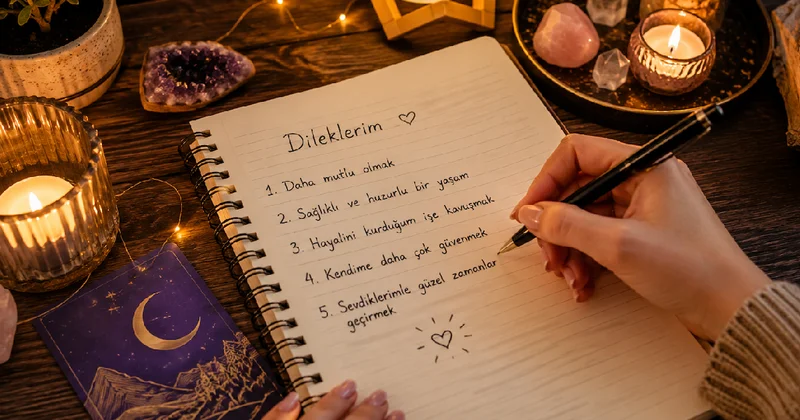 Dileklerim ♡
1. Daha mutlu olmak
2. Sağlıklı ve huzurlu bir yaşam
3. Hayalini kurduğum işe kavuşmak
4. Kendime daha çok güvenmek
5. Sevdiklerimle güzel zamanlar
geçirmek